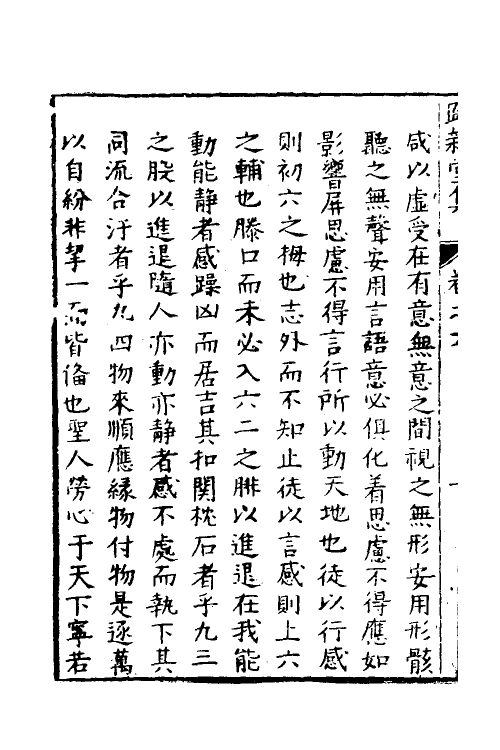 咸以虛受在有意無意之間視之無形安用形骸
聽之無聲安用言語意必俱化着思慮不得應如
影響屏思慮不得言行所以動天地也徒以行感
則初六之拇也志外而不知止徒以言感則上六
之輔也滕口而未必入六二之腓以進退在我能
動能静者感躁凶而居吉其扣関枕石者乎九三
之股以進退隨人亦動亦静者感不處而執下其
同流合汙者乎九四物來順應緣物付物是逐萬
以自紛非挈一而皆俻也聖人勞心于天下寧若